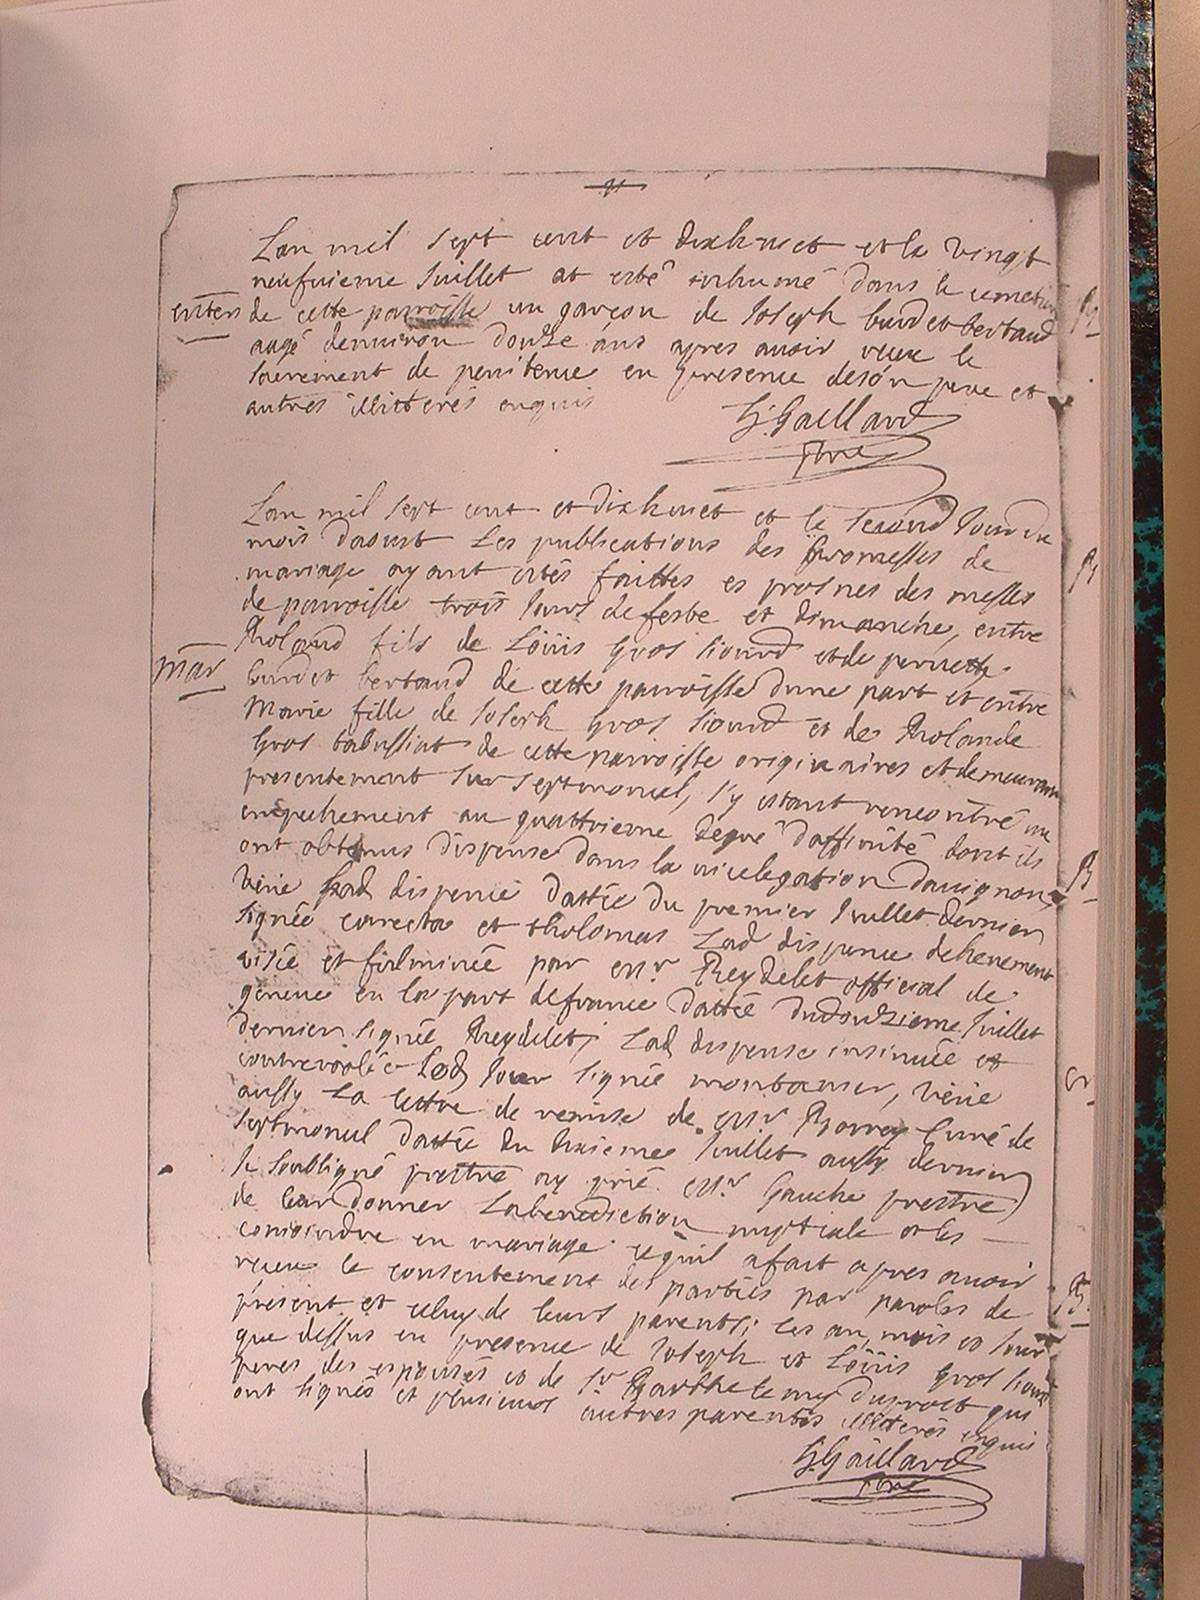 Lan mil sept cent et dixhuict et le vingt
neufuieme Juillet at esté inhumé dans le cemetiere
enterr de cette parroisse un garçon de Joseph burdet bertaud
augé denuiron douze ans apres auoir receu le
sacrement de penitence en presence de son pere et
autres illitterés enquis
G. Gaillard
Ptre
Lan mil sept cent et dixhuict et le second Jour du
mois daoust Les publications des promesses de
mariage ayant estés faittes es prosnes des messes
de parroisse trois Jours de feste et dimanche, entre
Rholand fils de Loüis gros Siourd et de pernette
mar burdet bertaud de cette parroisse dune part et entre
Marie fille de Joseph gros Siourd et de Rholande
gros tabussiat de cette parroisse originaires et demeurants
presentement sur Septmoncel, s'y estant rencontré un
empechement au quattrieme degré daffinité dont ils
ont obtenus dispense dans la vicelegation dauignon,
veüe Lad dispence dattée du premier Juillet dernier
signée et tholomas Lad dispence
visée et fulminée par Mr Reydelet official de
geneue en la part defrance dattée dudouzieme Juillet
dernier signée Reydelet; Lad dispense insinuée et
controolée Led Jour signée montanier, veüe
aussy La lettre de remise de Mr Borrey Curé de
Septmoncel dattée du Juillet aussy dernier
Je soubsigné prettre ay prié Mr gauche prettre
de leur donner Labenediction nuptiale et les
conioindre en mariage cequil afait apres auoir
receu le consentement des parties par paroles de
present et celuy de leurs parents; les an, mois et Jour
que dessus en presence de Joseph et Loüis gros Siourd
peres des espousés et de Sr Barthelemy duproct qui
ont signés et plusieurs autres parents illiterés enquis
G. Gaillard
Ptre